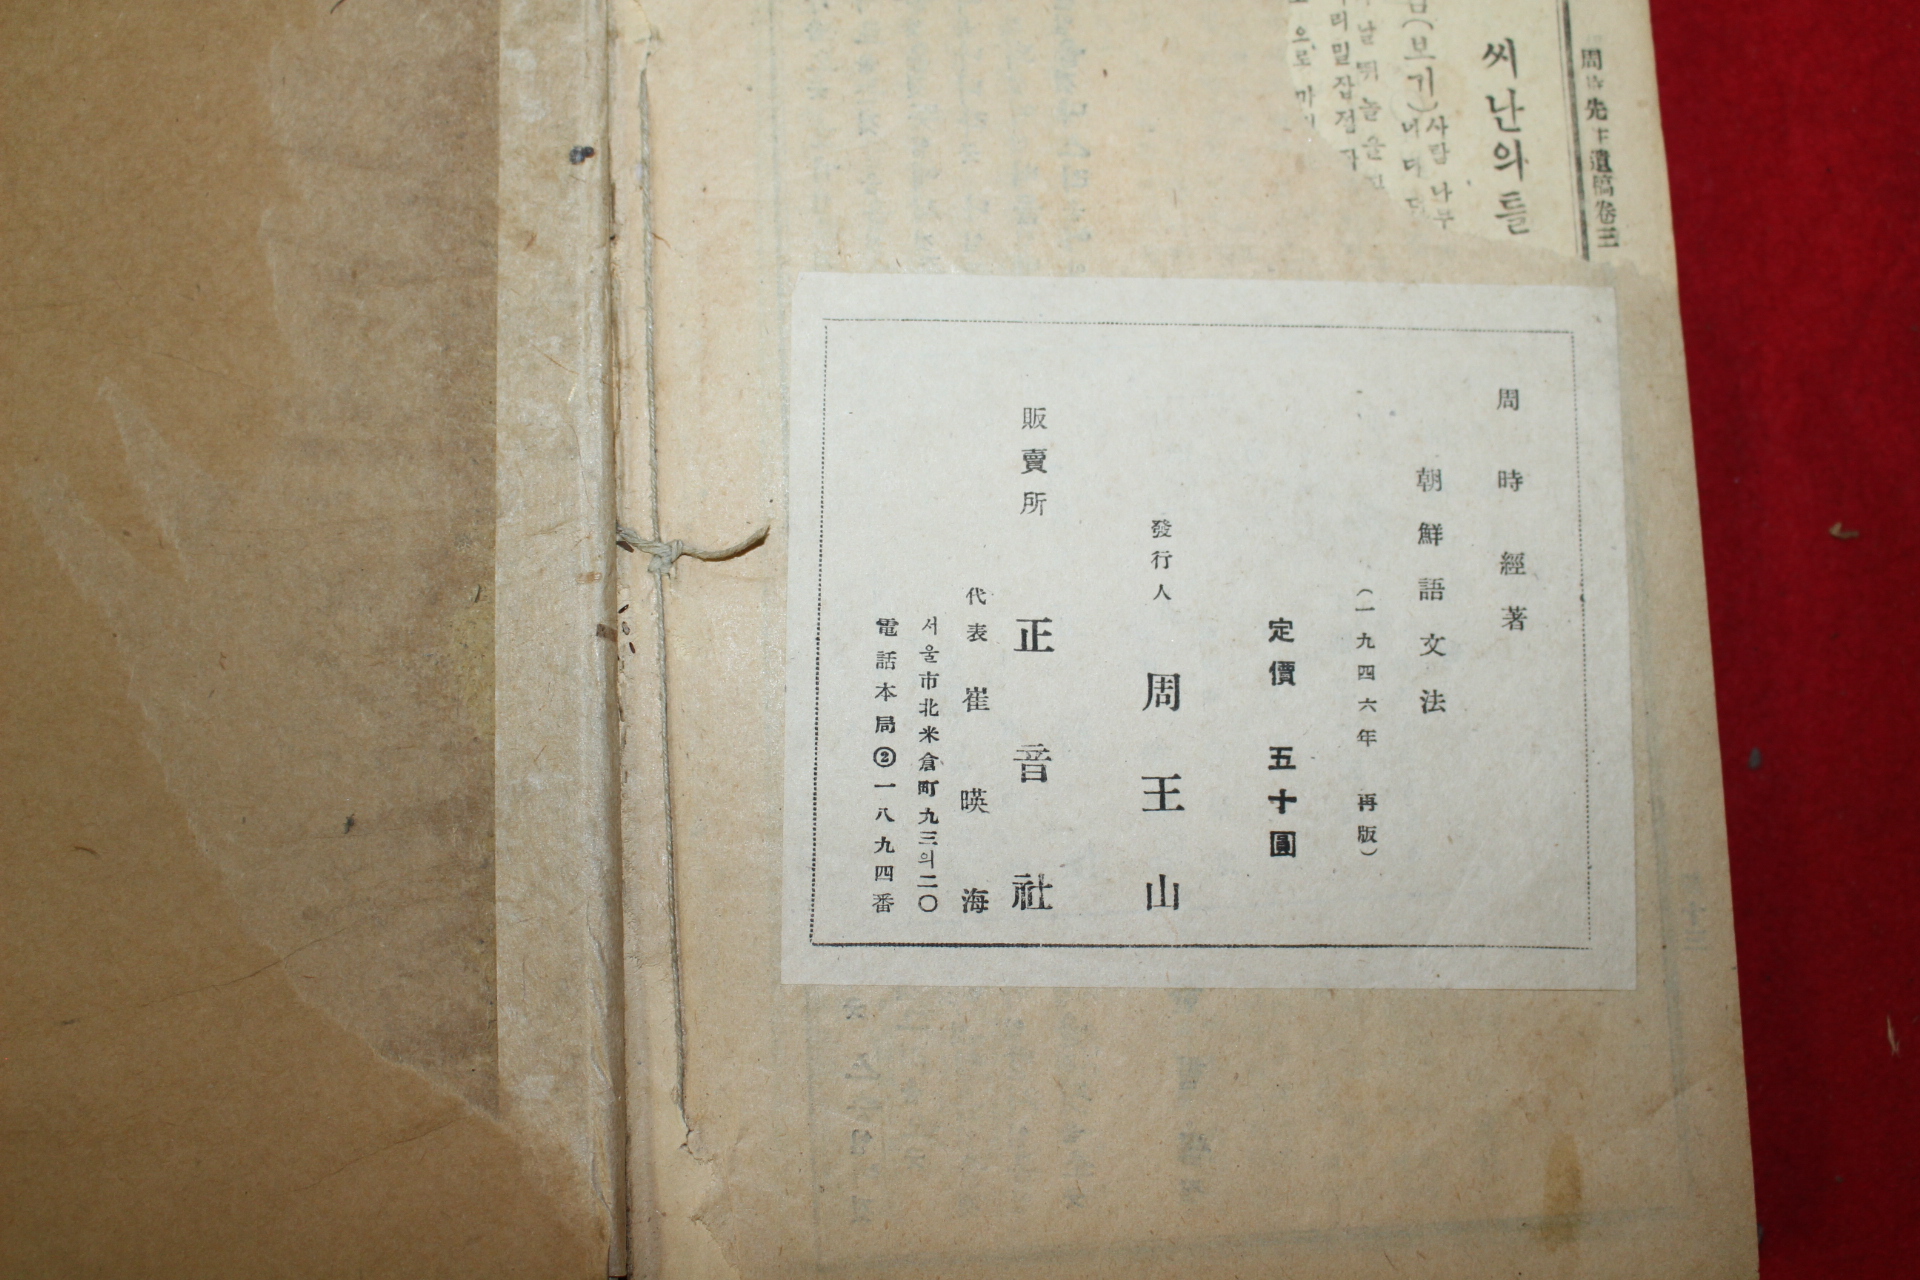 周時先生遺稿卷三
씨난의틀
(보기)사람 나무
周時經著
朝鮮語文法
(一九四六年 再版)
定價 五十圓
發行人 周王山
販賣所 正音社
代表 崔暎海
서울市北米倉町九三의二〇
電話本局②一八九四番